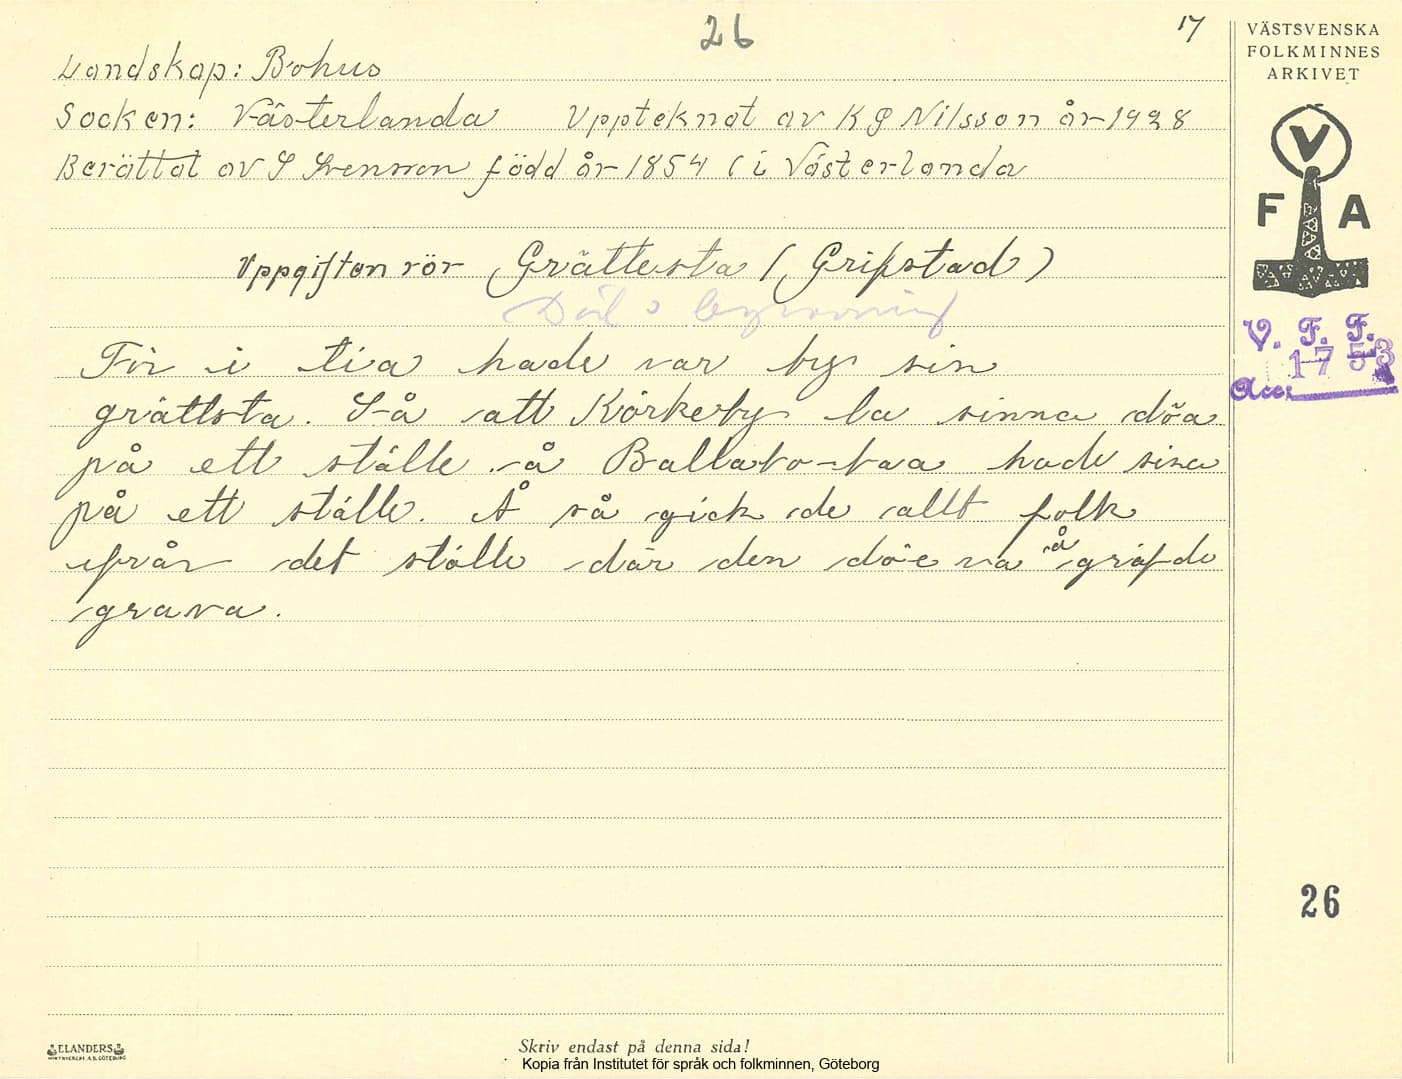 26
17
VÄSTSVENSKA
FOLKMINNES
ARKIVET
Landskap: Bohus
Socken: Västerlanda Upptecknat av K G Nilsson år 1928
Berättat av S Svensson född år 1854 i Västerlanda
V
F A
Uppgiften rör Grättesta (Grifstad)
Död o begravning
V. F. F.
1753
Acc.
För i tia hade var by sin
grättsta. Så att Körkeby la sinna döa
på ett ställe å Ballabo-baa hade sina
på ett ställe. Å så gick de allt folk
ifrån det ställe där den döe va å gräfde
grava.
26
ELANDERS
Skriv endast på denna sida!
Kopia från Institutet för språk och folkminnen, Göteborg